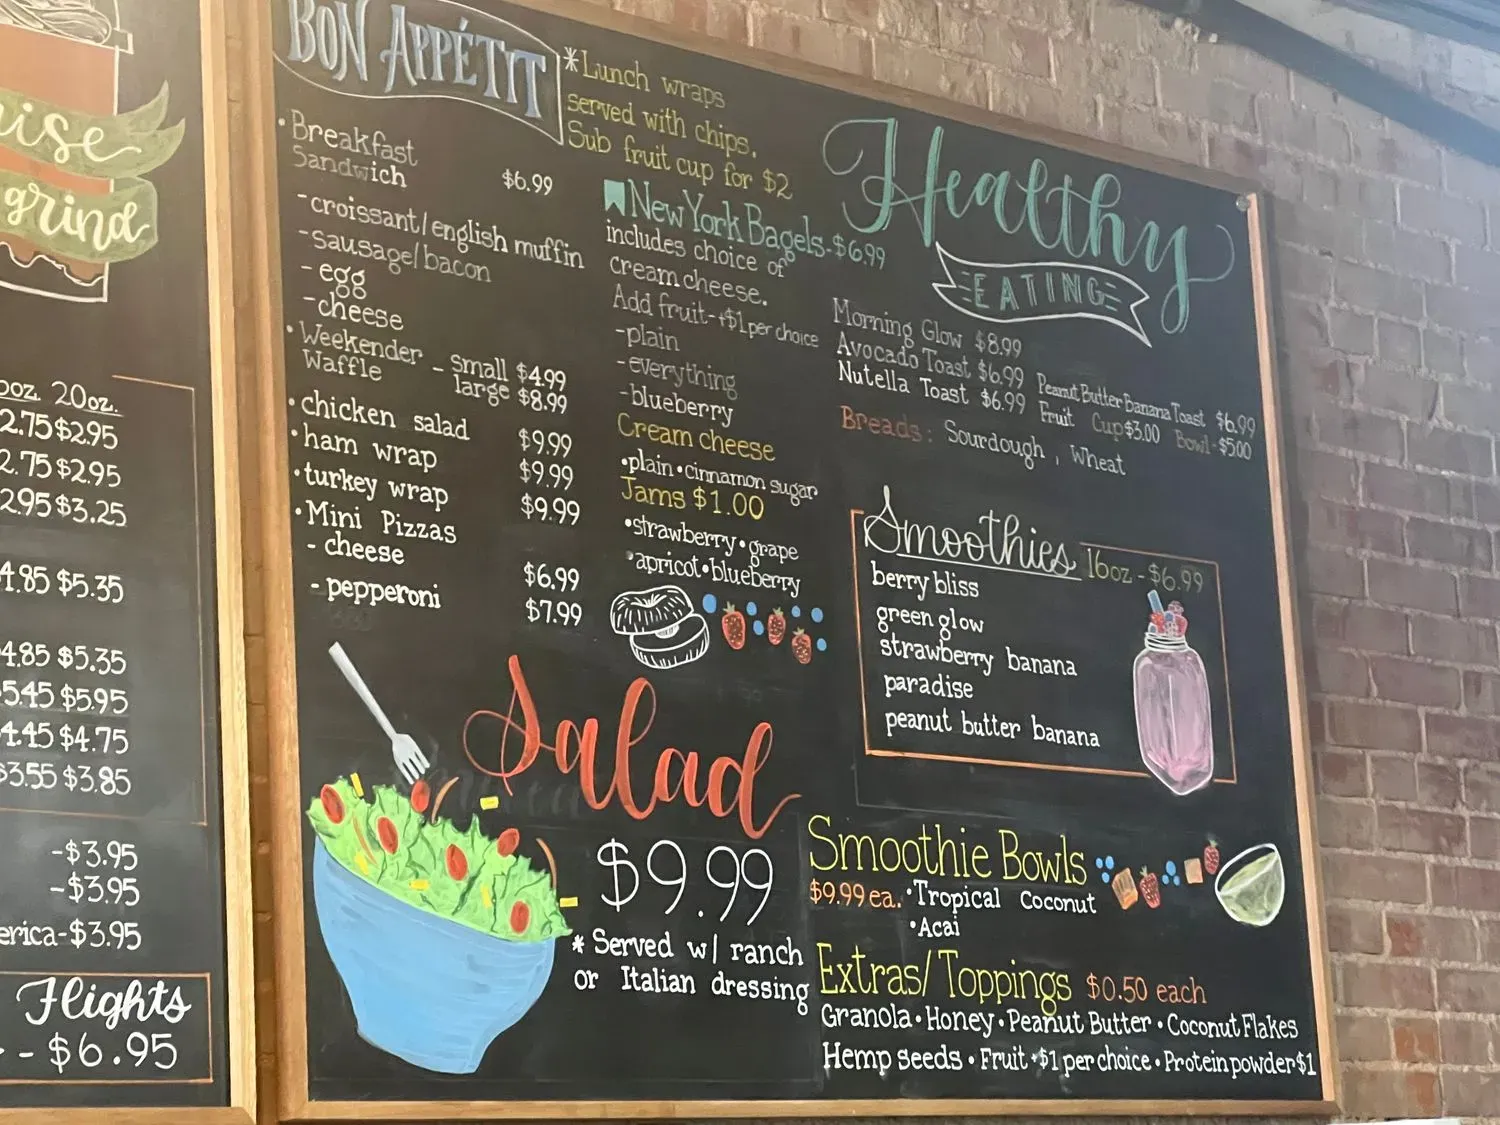 ise
grind
oz. 20oz.
2.75 $2.95
2.75 $2.95
2.95 $3.25
4.85 $5.35
4.85 $5.35
5.45 $5.95
4.45 $4.75
$3.55 $3.85
-$3.95
-$3.95
erica-$3.95
Flights
- $6.95
BON APPÉTIT
•Breakfast
Sandwich $6.99
-croissant/english muffin
-sausage/bacon
-egg
-cheese
•Weekender - small $4.99
Waffle large $8.99
•chicken salad $9.99
•ham wrap $9.99
•turkey wrap $9.99
•Mini Pizzas
- cheese $6.99
- pepperoni $7.99
*Lunch wraps
served with chips.
Sub fruit cup for $2
New York Bagels-$6.99
includes choice of
cream cheese.
Add fruit-+$1 per choice
-plain
-everything
-blueberry
Cream cheese
•plain•cinnamon sugar
Jams $1.00
•strawberry•grape
•apricot•blueberry
Salad
$9.99
* Served w/ ranch
or Italian dressing
Healthy
EATING
Morning Glow $8.99
Avocado Toast $6.99 Peanut Butter Banana Toast $6.99
Nutella Toast $6.99 Fruit Cup $3.00 Bowl-$5.00
Breads: Sourdough, Wheat
Smoothies 16oz - $6.99
berry bliss
green glow
strawberry banana
paradise
peanut butter banana
Smoothie Bowls
$9.99 ea. •Tropical Coconut
•Acai
Extras/Toppings $0.50 each
Granola•Honey•Peanut Butter•Coconut Flakes
Hemp seeds•Fruit+$1 per choice•Protein powder $1